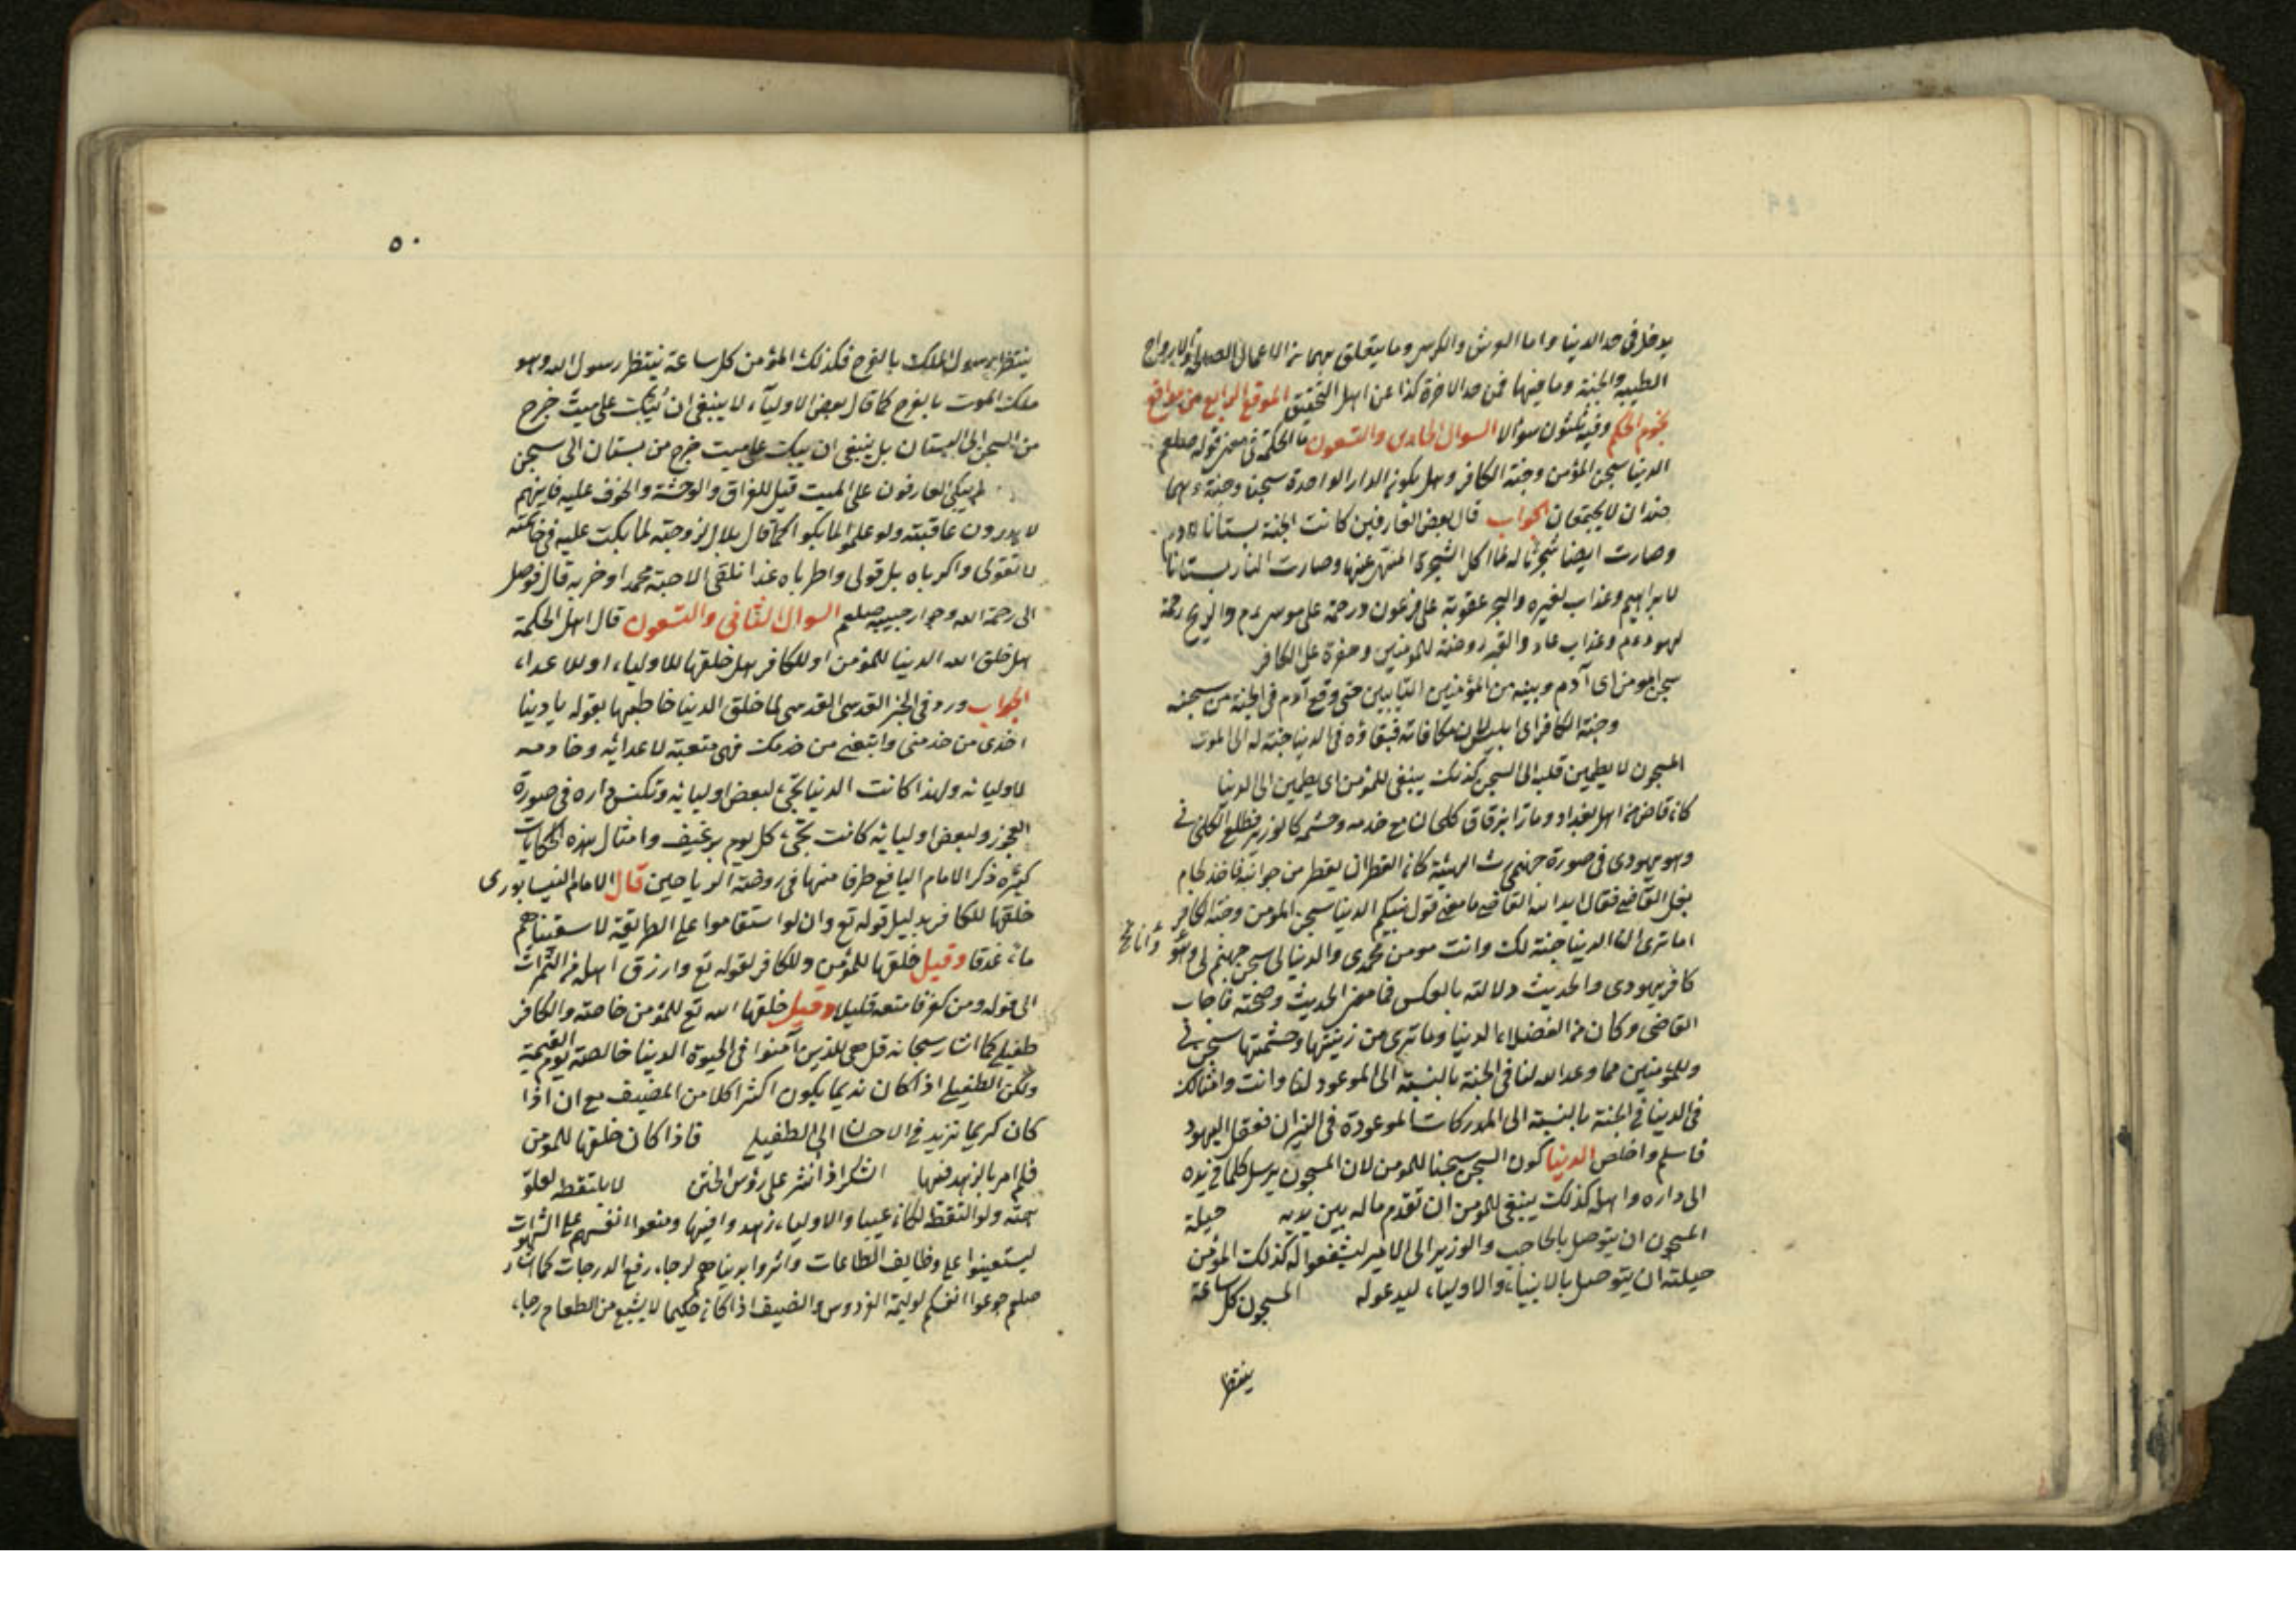 يدخل فى حد الدنيا واما العرش والكرسى وما يتعلق بهما من الاعمال الصالحة والارواح
الطيبة والجنة وما فيها فمن حد الاخرة كذا عن اهل التحقيق الموقع الرابع من مواقع
نجوم الحكم وفيه ثلثون سؤالا السوال الحادى والتسعون ما الحكمة فى معنى قوله صلعم
الدنيا سجن المؤمن وجنة الكافر وهل يكون الدار الواحدة سجنا وجنة وهما
ضدان لا يجتمعان الجواب قال بعض العارفين كانت الجنة بستانا لادم
وصارت ايضا سجنا له لما اكل الشجرة المنتهى عنها وصارت النار بستانا
لابراهيم وعذاب لغيره والبحر عقوبة على فرعون ورحمة على موسى عم والريح رحمة
لهود عم وعذاب عاد والقبر روضة للمؤمنين وحفرة على الكافر
سجن المؤمن اى آدم وبنيه من المؤمنين التايبين حتى وقع آدم فى الجنة من سجنه
وجنة الكافر اى ابليس مكافاته فبقاؤه فى الدنيا جنة له الى الموت
المسجون لا يطمين قلبه الى السجن كذلك ينبغى للمؤمن اى يطمين الى الدنيا
كان قاض من اهل بغداد ومارا بزقاق كلخان مع خدمه وحشمه كالوزير فطلع الكلخنى
وهو يهودى فى صورة جهنمى رث الهيئة كان القطران يقطر من جوانبه فاخذ لجام
بغل القاضى فقال ايد الله القاضى ما معنى قول نبيكم الدنيا سجن المؤمن وجنة الكافر
اما ترى ان الدنيا جنة لك وانت مومن محمدى والدنيا لى سجن جهنم لى وانا
كافر يهودى والحديث دلالته بالعكس فما معنى الحديث وصحته فاجاب
القاضى وكان من الفضلاء الدنيا وما ترى من زينتها وحشمتها سجن
وللمؤمنين مما وعد الله لنا فى الجنة بالنسبة الى الموعود لنا وانت وامثالك
فى الدنيا فى الجنة بالنسبة الى المدركات الموعودة فى النيران فعقل اليهود
فاسلم واخلص الدنيا كون السجن سجنا للمومن لان المسجون يرسل كلما فى يده
الى داره واهله كذلك ينبغى للمومن ان تقدم ماله بين يديه حيلة
المسجون ان يتوصل بالحاجب والوزير الى الامير ليشفعوا له كذلك المؤمن
حيلته ان يتوصل بالانبياء والاولياء ليدعو له المسجون كل ساعة
ينتظر
٥٠
ينتظر رسول الملك بالفرح فكذلك المؤمن كل ساعة ينتظر رسول الله وهو
ملك الموت بالفرح كما قال بعض الاولياء لا ينبغى ان يبكت على ميت خرج
من السجن الى البستان بل ينبغى ان يبكت على ميت خرج من بستان الى سجن
لم يبكى العارفون على الميت قيل للفراق والوحشة والخوف عليه فانهم
لا يدرون عاقبته ولو علموا لما بكوا كما قال بلال لزوجته لما بكت عليه فى خاتمته
لا تقولى واكرباه بل قولى واطرباه غدا نلقى الاحبة محمدا وحزبه قال فوصل
الى رحمة الله وجوار حبيبه صلعم السوال الثانى والتسعون قال اهل الحكمة
هل خلق الله الدنيا للمؤمن او للكافر هل خلقها للاولياء او للاعداء
الجواب ورد فى الخبر القدسى القدسى لما خلق الدنيا خاطبها بقوله يا دينا
اخدمى من خدمنى واتبعى من خدمك فهى متعبة لاعدائه وخادمة
لاوليائه ولهذا كانت الدنيا تجىء لبعض اوليائه وتكنس داره فى صورة
العجوز ولبعض اوليائه كانت تجىء كل يوم برغيف وامثال هذه الحكايات
كثيرة ذكر الامام اليافع طرفا منها فى روضة الرياحين قال الامام النيسابورى
خلقها للكافر بدليل قوله تع وان لو استقاموا على الطريقة لاسقيناهم
ماء غدقا وقيل خلقها للمؤمن وللكافر لقوله تع وارزق اهله من الثمرات
الى قوله ومن كفر فامتعه قليلا وقيل خلقها الله تع للمؤمن خاصة والكافر
طفيلى كما اشار سبحانه قل هى للذين آمنوا فى الحيوة الدنيا خالصة يوم القيمة
ولكن الطفيلى اذا كان نديما يكون اكثر اكلا من المضيف مع ان اذا
كان كريما تزيد فى الاحسان الى الطفيلى فاذا كان خلقها للمؤمن
فلم امر بالزهد فيها السكر اذا نثر على رؤس الختن لا يلتقطه لعلو
همته ولو التقط لكان عيبا والاولياء زهدوا فيها ومنعوا انفسهم على الشهوات
ليستعينوا على وظايف الطاعات واثروا بدنياهم لرجاء رفع الدرجات كما اشار
صلعم جوعوا انفسكم لوليمة الفردوس والضيف اذا كان حكيما لا يشبع من الطعام رجاء